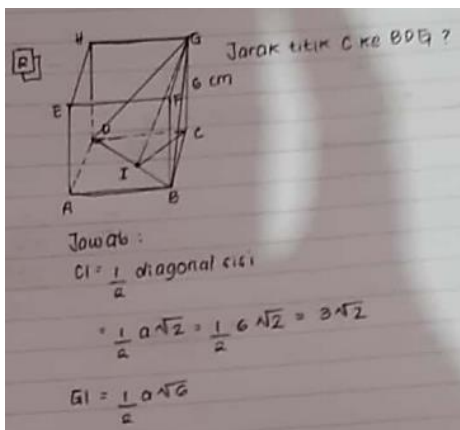 2
H G Jarak titik C ke BDG ?
6 cm
E F
D C
I
A B
Jawab :
CI = 1/2 diagonal sisi
= 1/2 a√2 = 1/2 6√2 = 3√2
GI = 1/2 a√6